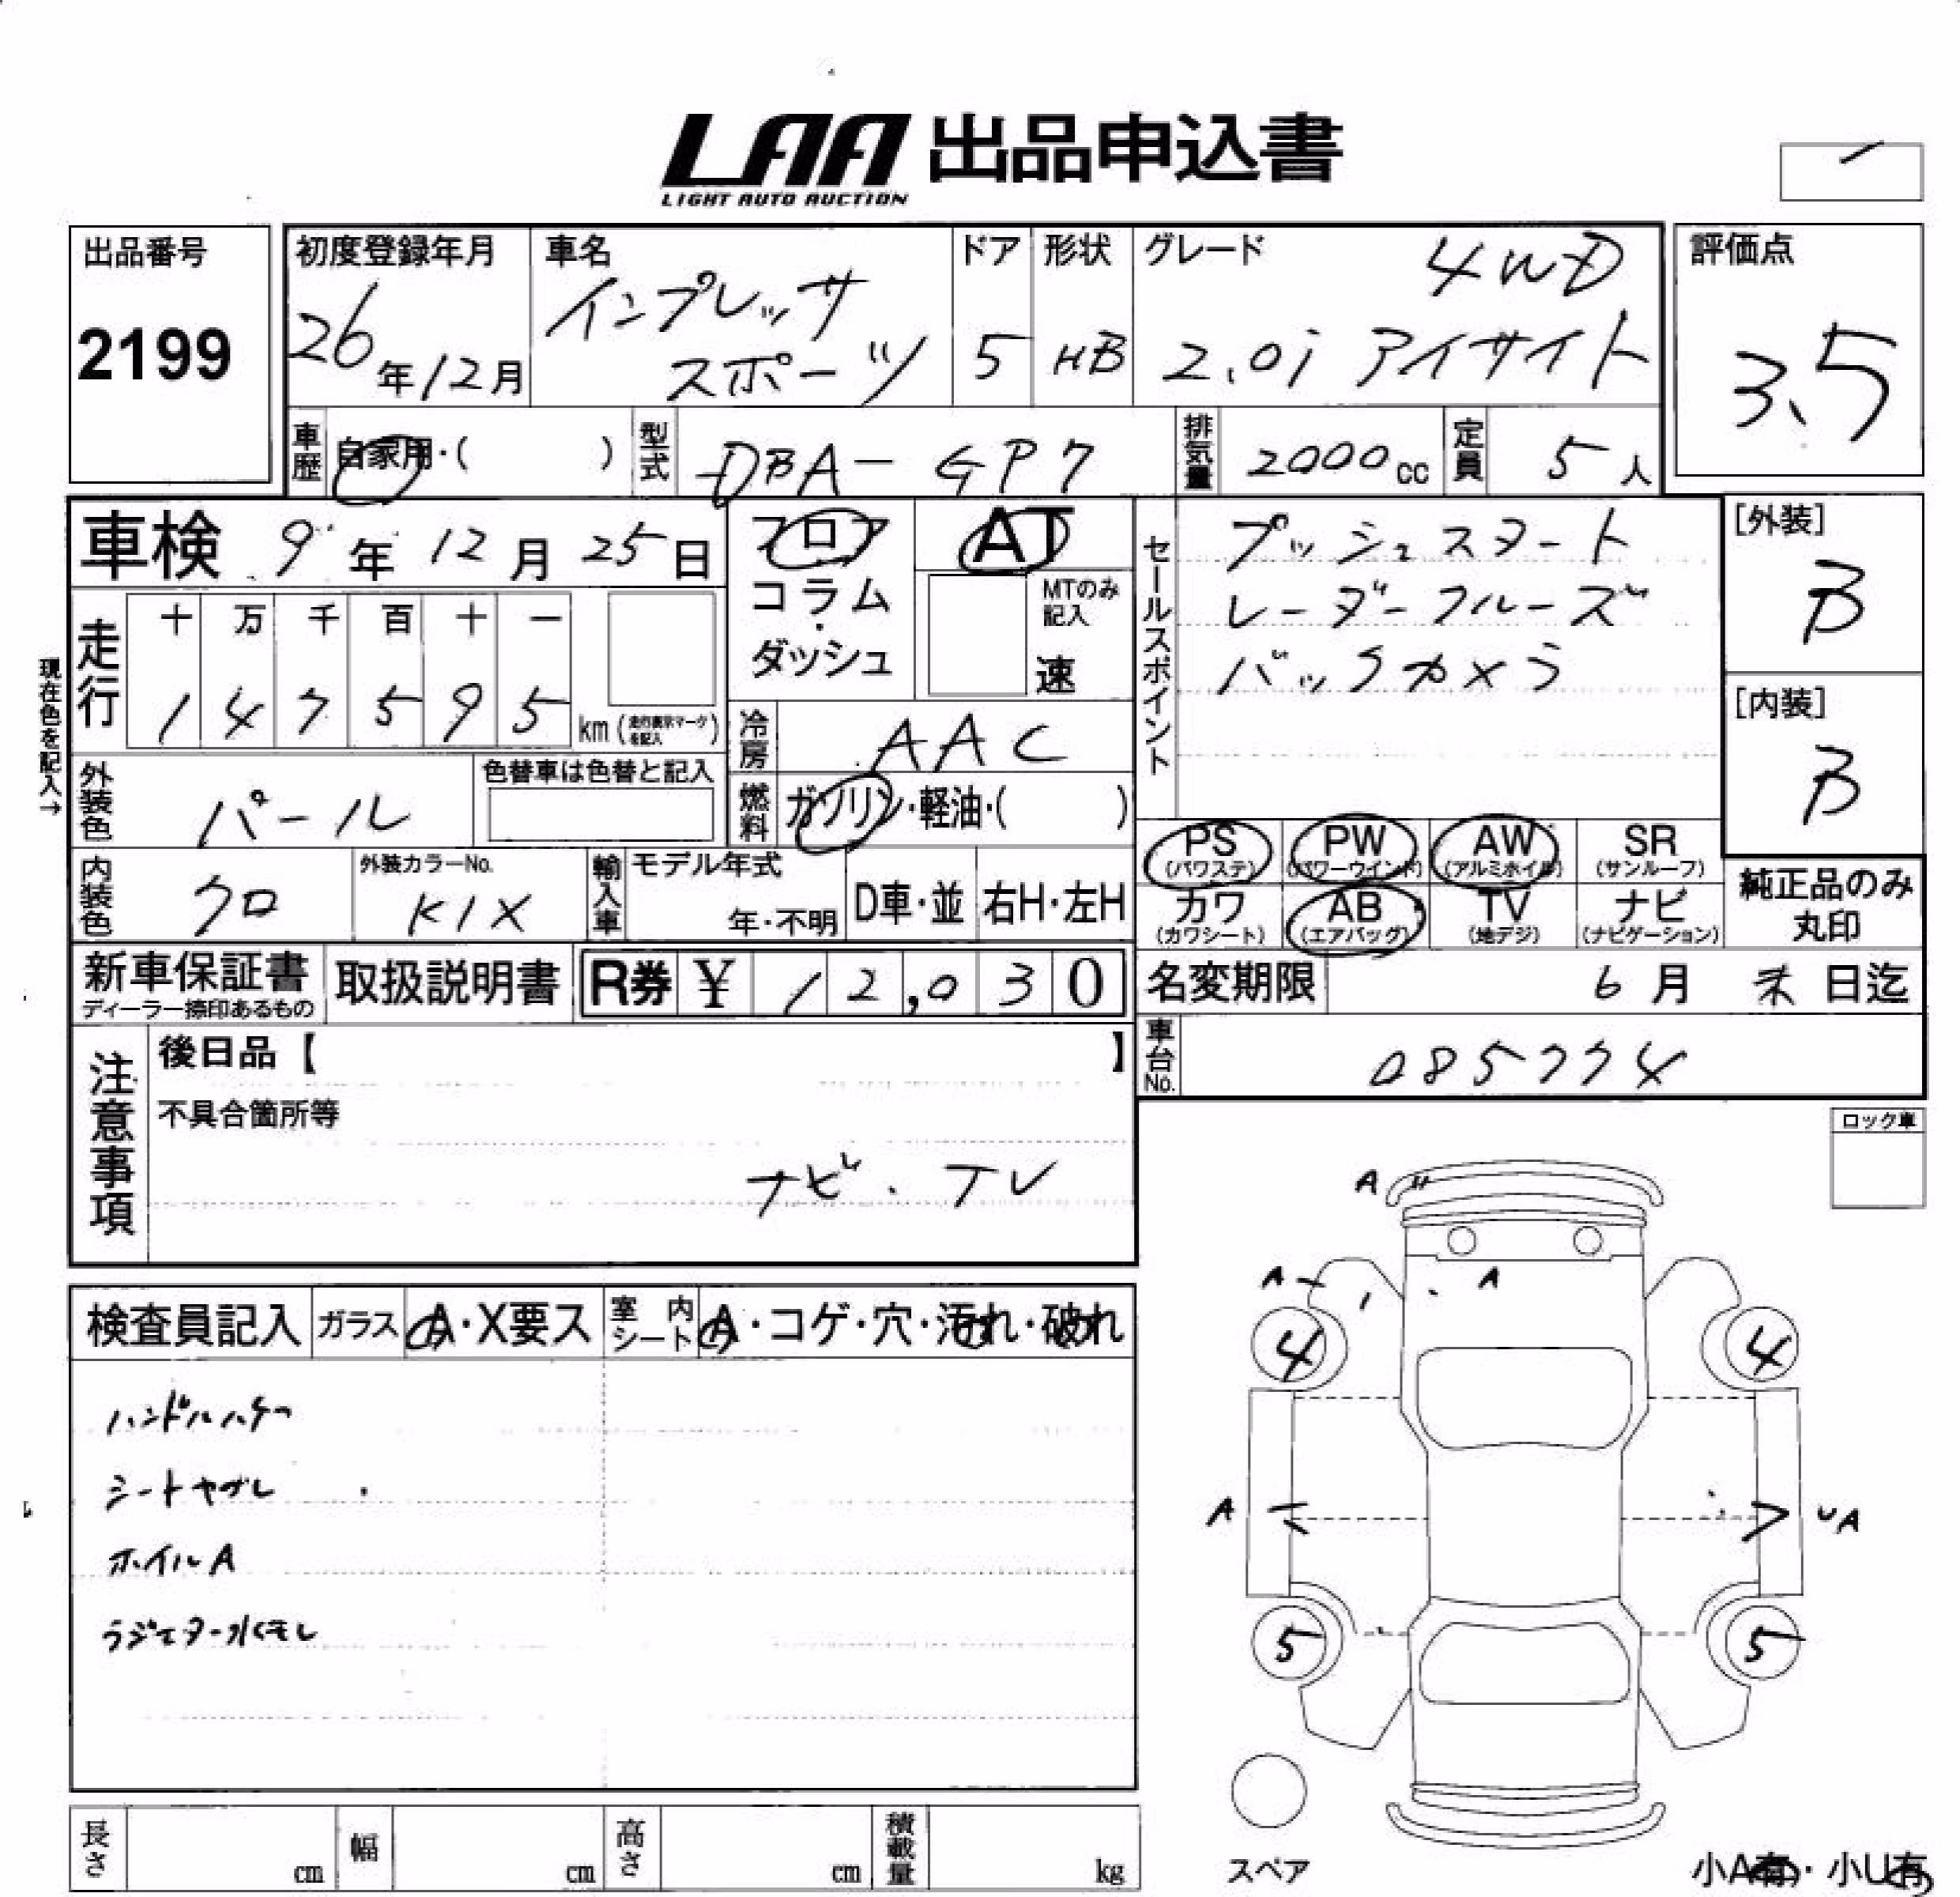 LAA 出品申込書
LIGHT AUTO AUCTION
出品番号
2199
初度登録年月
26年12月
車名
インプレッサ
スポーツ
ドア
5
形状
HB
グレード
4WD
2.0i アイサイト
評価点
3.5
車歴
自家用・( )
型式
DBA-GP7
排気量
2000cc
定員
5人
車検 9年12月25日
現在色を記入→
走行
十 万 千 百 十 一
1 4 7 5 9 5
km(走行表示マークを記入)
フロア
コラム
・
ダッシュ
AT
MTのみ
記入
速
冷房
AAC
燃料
ガソリン・軽油・( )
セールスポイント
プッシュスタート
レーダークルーズ
バックカメラ
[外装]
B
[内装]
B
外装色
パール
色替車は色替と記入
内装色
クロ
外装カラーNo.
K1X
輸入車
モデル年式
年・不明
D車・並
右H・左H
PS
(パワステ)
PW
(パワーウインド)
AW
(アルミホイル)
SR
(サンルーフ)
カワ
(カワシート)
AB
(エアバッグ)
TV
(地デジ)
ナビ
(ナビゲーション)
純正品のみ
丸印
新車保証書
ディーラー捺印あるもの
取扱説明書
R券 ¥ 12,030
名変期限 6月 末 日迄
車台No.
085774
注意事項
後日品【 】
不具合箇所等
ナビ.TV
ロック車
検査員記入
ガラス
A・X要ス
室内
シート
A・コゲ・穴・汚れ・破れ
ハンドルハゲ
シートヤブレ
ホイルA
ラジエター水くもし
A
A
A
4
4
A
UA
5
5
スペア
小A有・小U有
長さ
cm
幅
cm
高さ
cm
積載量
kg